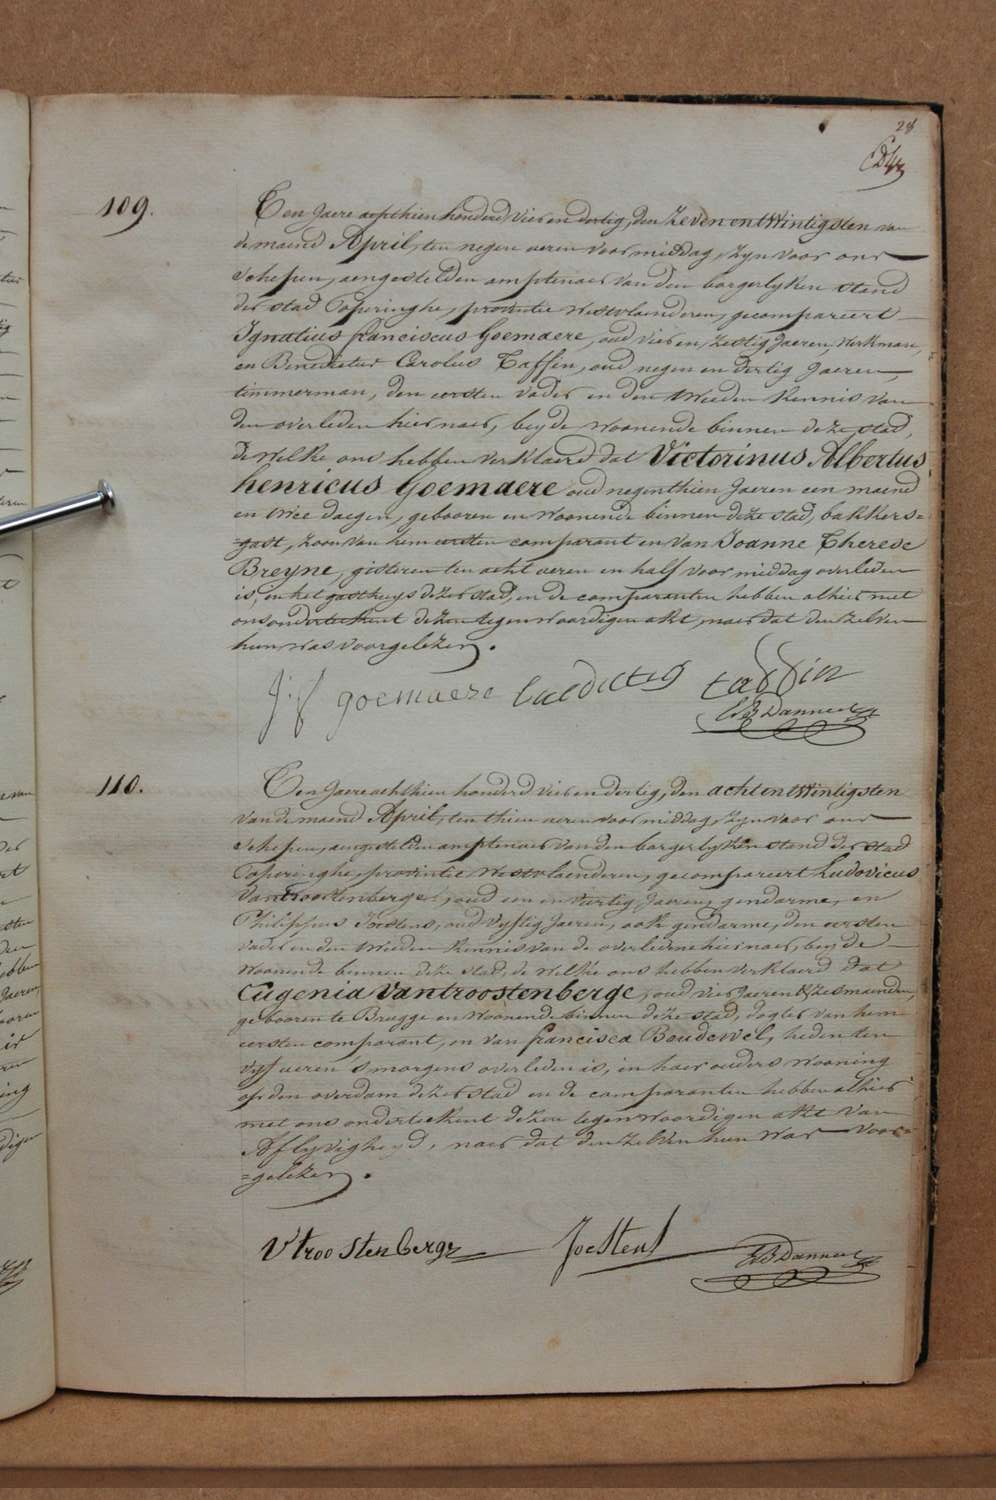 28
109.
Ten Jaere achthien honderd vier en dertig, den zeven en twintigsten van
de maend April, ten negen ueren voormiddag, zyn voor ons
schepen, aengestelden amptenaer van den borgerlyken stand
der stad Poperinghe, provintie Westvlaenderen, gecompareert
Ignatius franciscus Goemaere, oud vier en zestig Jaeren, Werkman,
en Benedictus Carolus Taffin, oud negen en dertig Jaeren,
timmerman, den eersten vader en den tweeden kennis van
den overleden hiernaer, beyde woonende binnen deze stad,
dewelke ons hebben verklaerd dat Victorinus Albertus
henricus Goemaere oud negenthien Jaeren een maend
en twee daegen, gebooren en woonende binnen deze stad, bakkers=
=gast, zoon van hem eersten comparant en van Joanne Therese
Breyne, gisteren ten acht ueren en half voormiddag overleden
is, in het gasthuys dezer stad, en de comparanten hebben alhier met
ons onderteekent dezen tegenwoordigen akt, naer dat den zelven
hun was voorgelezen.
J:f goemaere benedictus taffin
110.
Ten Jaere achthien honderd vier en dertig, den acht en twintigsten
van de maend April, ten thien ueren voormiddag, zyn voor ons
schepen, aengestelden amptenaer van den borgerlyken stand der stad
Poperinghe, provintie Westvlaenderen, gecompareert Ludovicus
Vantroostenberge, oud een en veertig Jaeren, gendarme, en
Philippus Joostens, oud vyftig Jaeren, ook gendarme, den eersten
vader en den tweeden kennis van de overledene hiernaer, beyde
woonende binnen deze stad, de welke ons hebben verklaerd dat
Eugenia Vantroostenberge, oud vier Jaeren & zes maenden,
gebooren te Brugge en woonende binnen deze stad, dogter van hem
eersten comparant, en van francisca Boudewel, heden ten
vyf ueren s'morgens overleden is, in haer ouders wooning
op den overdam dezer stad en de comparanten hebben alhier
met ons onderteekent dezen tegenwoordigen akt van
Aflyvigheyd, naer dat den zelven hun was voor=
=gelezen.
V troostenberge Joestens